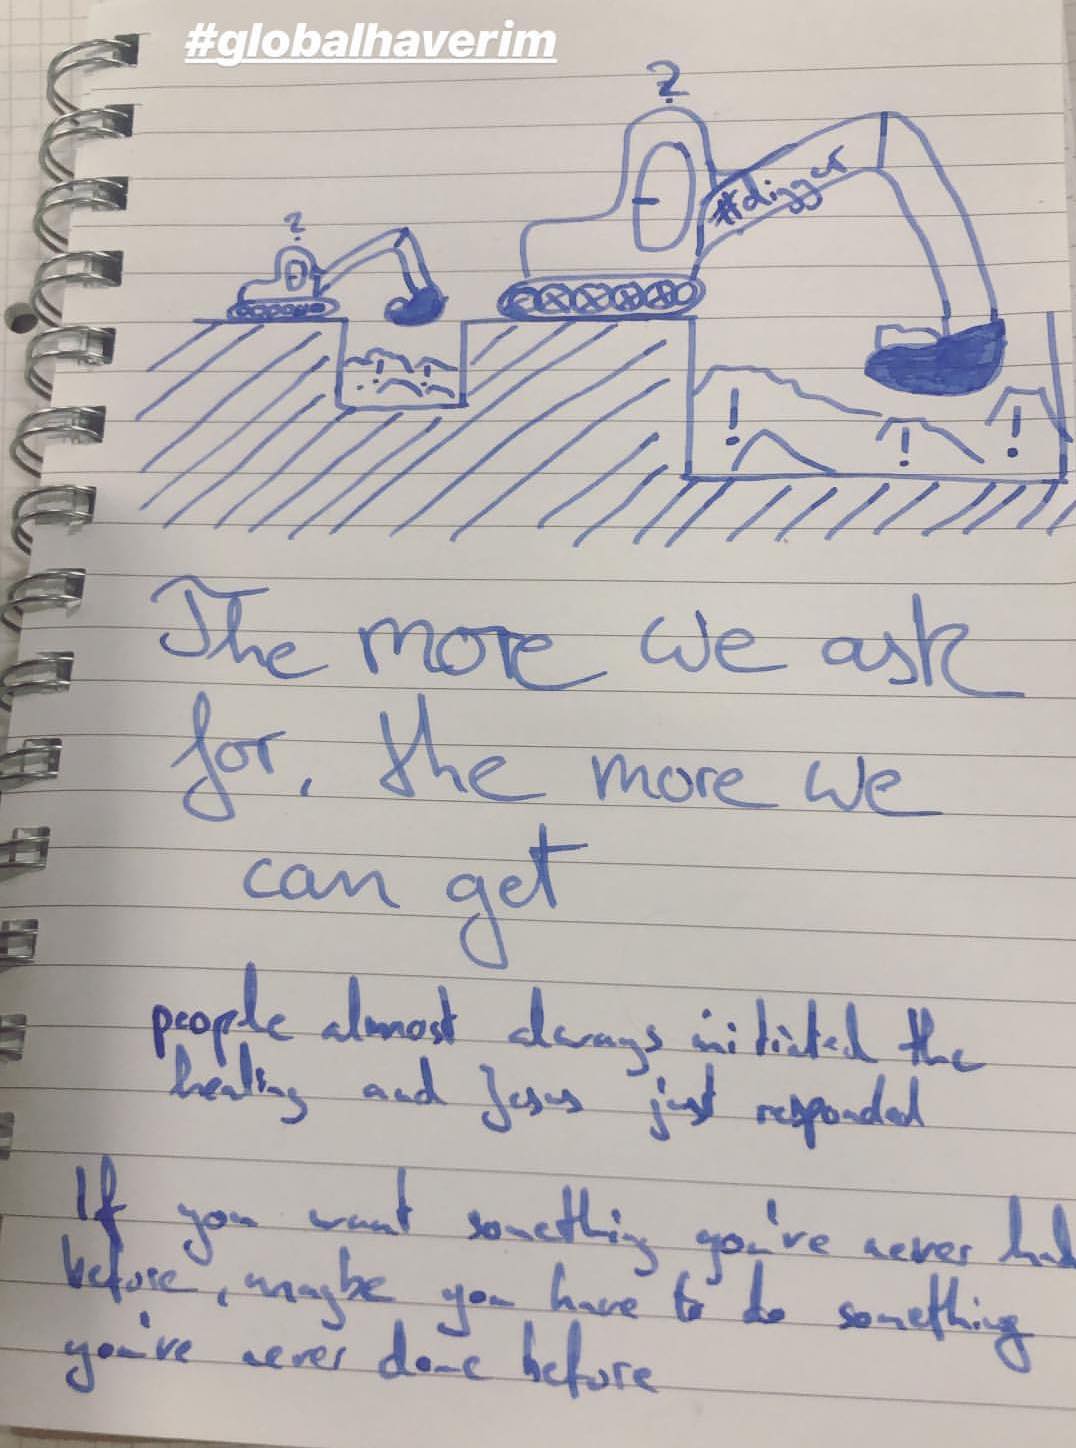 #globalhaverim
?
?
#digger
! !
! ! !
The more we ask
for, the more we
can get
people almost always initiated the
healing and Jesus just responded
If you want something you've never had
before, maybe you have to do something
you've never done before